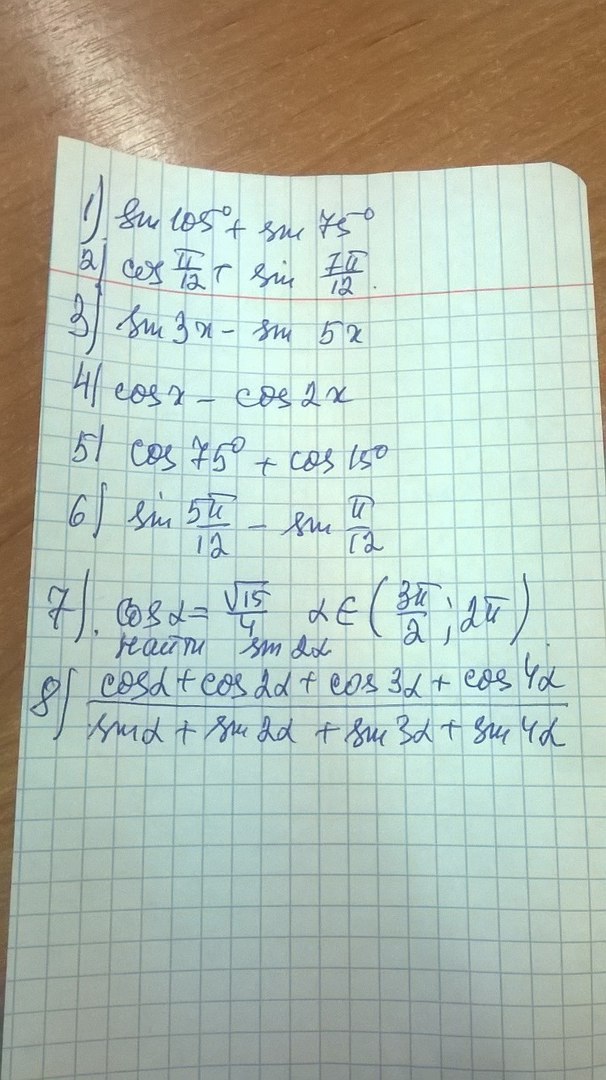 1) sin 105° + sin 75°
2) cos π/12 + sin 7π/12.
3) sin 3x - sin 5x
4) cos x - cos 2x
5) cos 75° + cos 15°
6) sin 5π/12 - sin π/12
7). cos α = √15/4 α ∈ (3π/2; 2π).
найти sin 2α
8) (cos α + cos 2α + cos 3α + cos 4α)/(sin α + sin 2α + sin 3α + sin 4α)